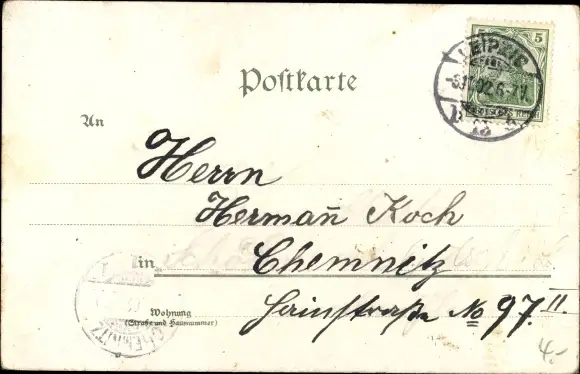 Postkarte
5 5
LEIPZIG
02. 6-7
An
Herrn
Herman̄ Koch
in
Chemnitz
Wohnung
(Straße und Hausnummer)
Hainstraße No 97. II.
CHEMNITZ
4.-